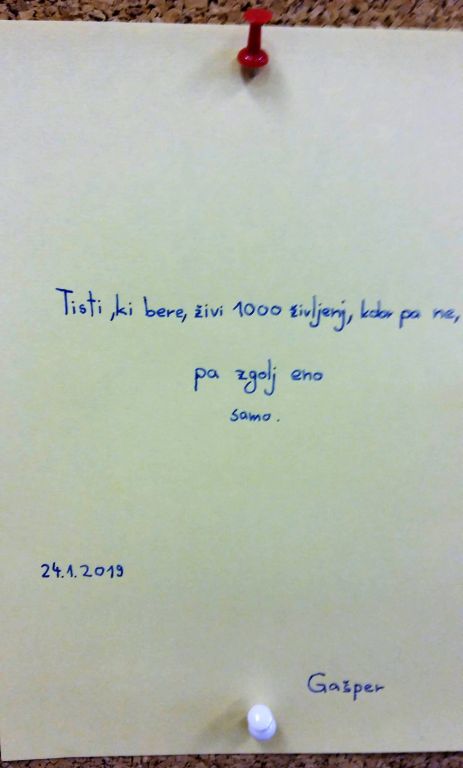 Tisti, ki bere, živi 1000 življenj, kdor pa ne,
pa zgolj eno
samo.
24.1.2019
Gašper